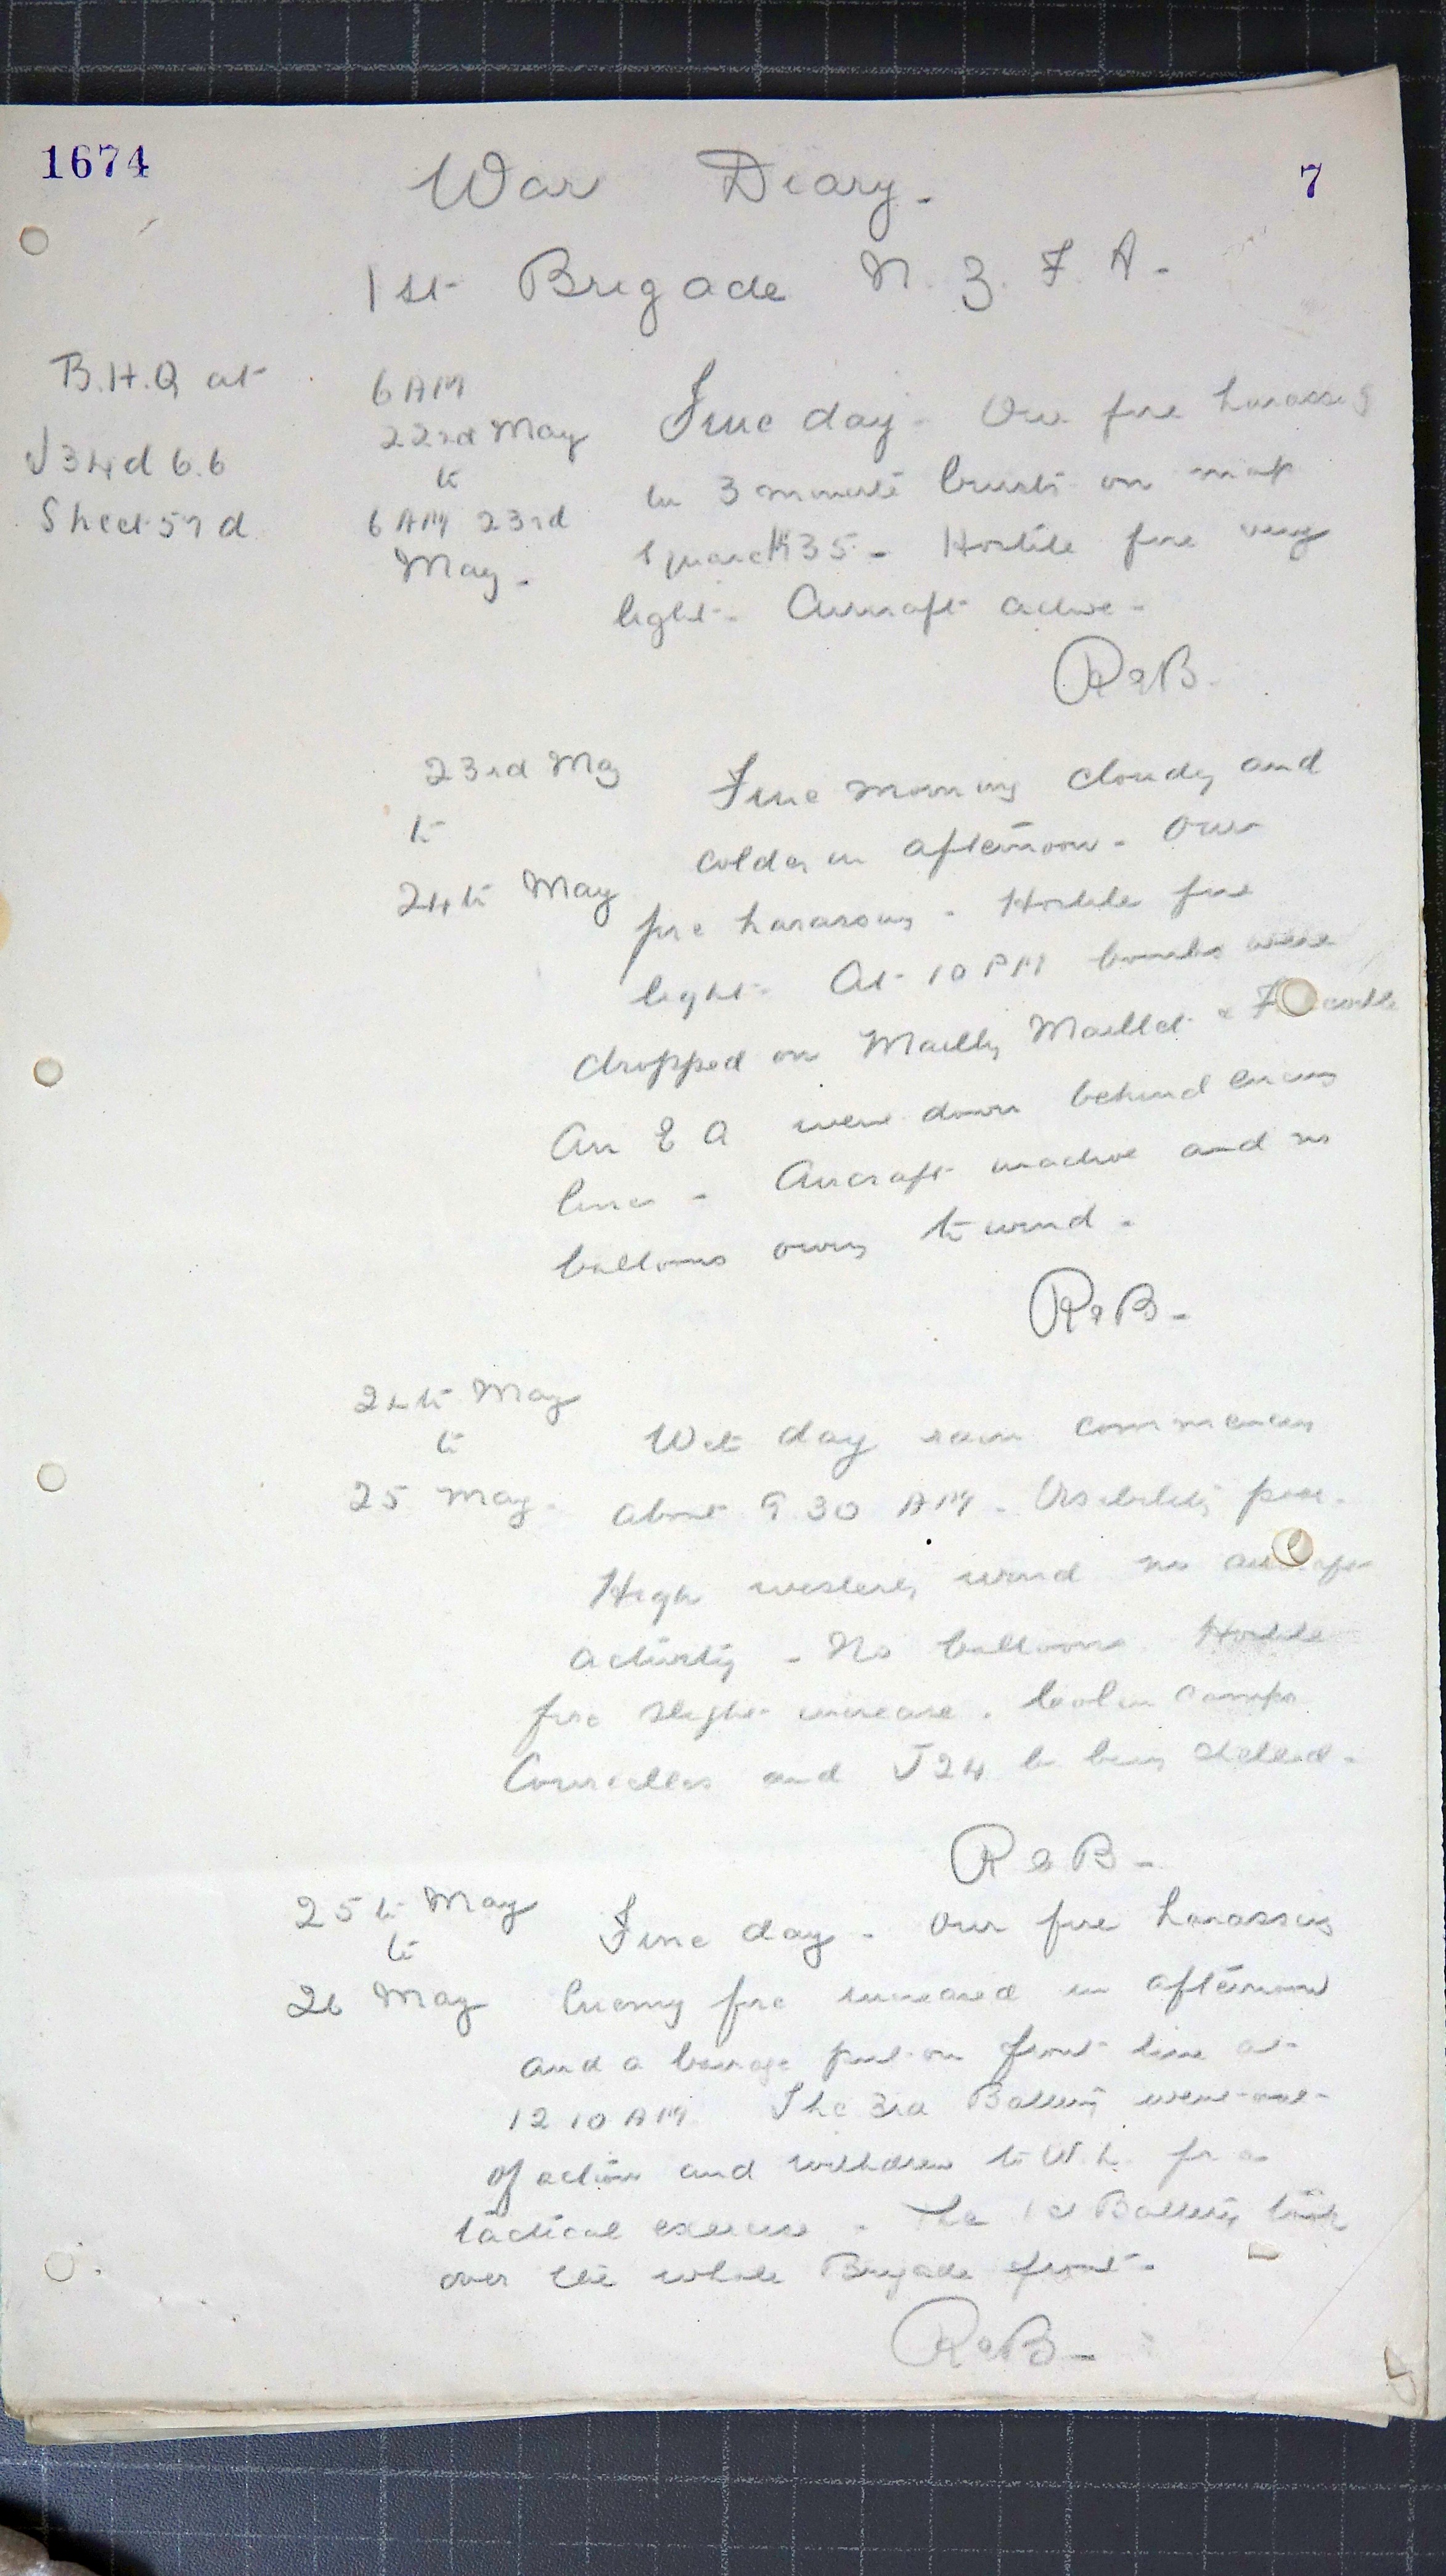 1674
7
War Diary.
1st Brigade N.Z.F.A.
B.H.Q at
J34d 6.6
Sheet 57d
6 AM
22nd May
to
6 AM 23rd
May.
Fine day. Our fire harassing
in 3 minute bursts on map
square K35. Hostile fire very
light. Aircraft active.
23rd May
to
24th May
Fine morning cloudy and
colder in afternoon. Our
fire harassing. Hostile fire
light. At 10 PM bombs were
dropped on Mailly Maillet &
An E A went down behind enemy
lines. Aircraft inactive and no
balloons owing to wind.
24th May
to
25 May.
Wet day rain commencing
about 9 30 AM. Visibility poor.
High westerly wind no aircraft
activity - No balloons Hostile
fire slight increase.
Courcelles and J24 b being shelled.
25th May
to
26 May
Fine day. Our fire harassing
Enemy fire increased in afternoon
and a barrage put on front line at
12 10 AM. The 3rd Battery went out
of action and withdrew to W.L. for a
tactical exercise. The 1st Battery took
over the whole Brigade front.